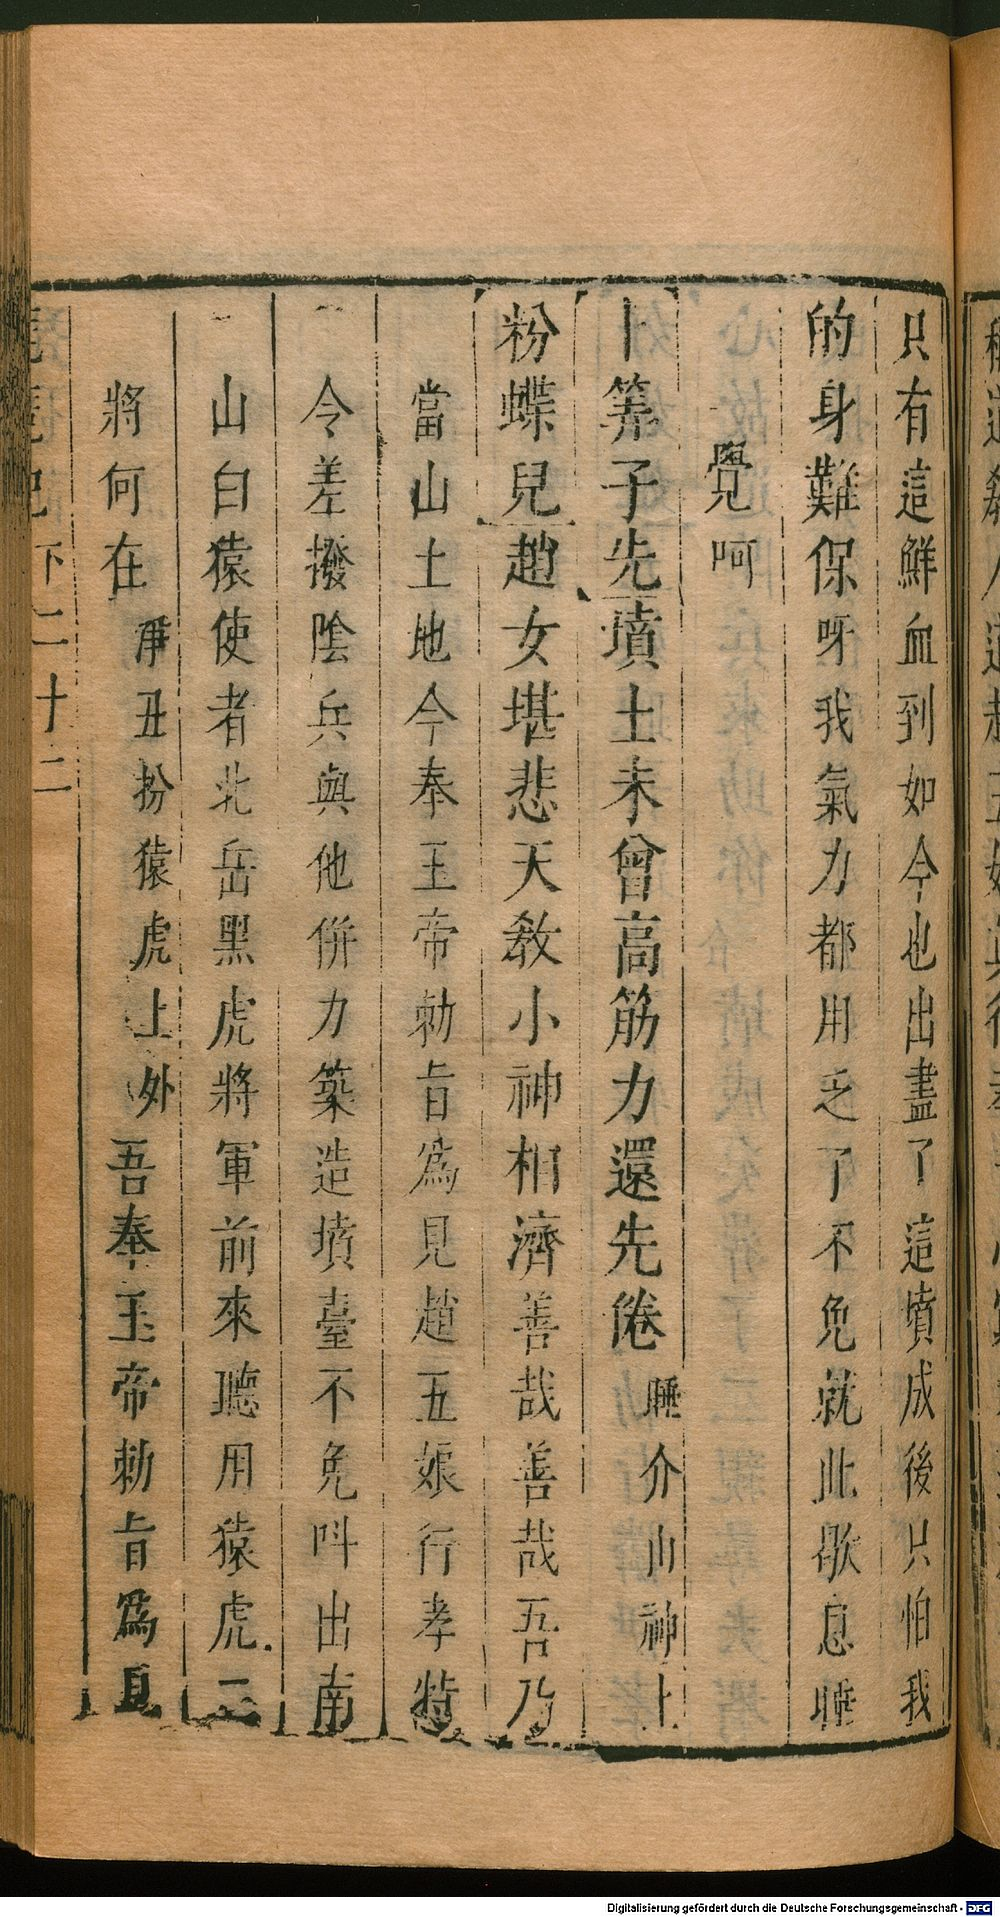 只有這鮮血到如今也出盡了這墳成後只怕我
的身難保呀我氣力都用乏了不免就此歇息睡
覺呵
卜筭子先墳土未曾高筋力還先倦睡介山神上
粉蝶兒趙女堪悲天教小神相濟善哉善哉吾乃
當山土地今奉玉帝勅旨為見趙五娘行孝特
令差撥陰兵與他併力築造墳臺不免呌出南
山白猿使者北岳黑虎將軍前來聽用猿虎二
將何在淨丑扮猿虎上外吾奉玉帝勅旨為見
琵琶記下二十二
Digitalisierung gefördert durch die Deutsche Forschungsgemeinschaft - DFG